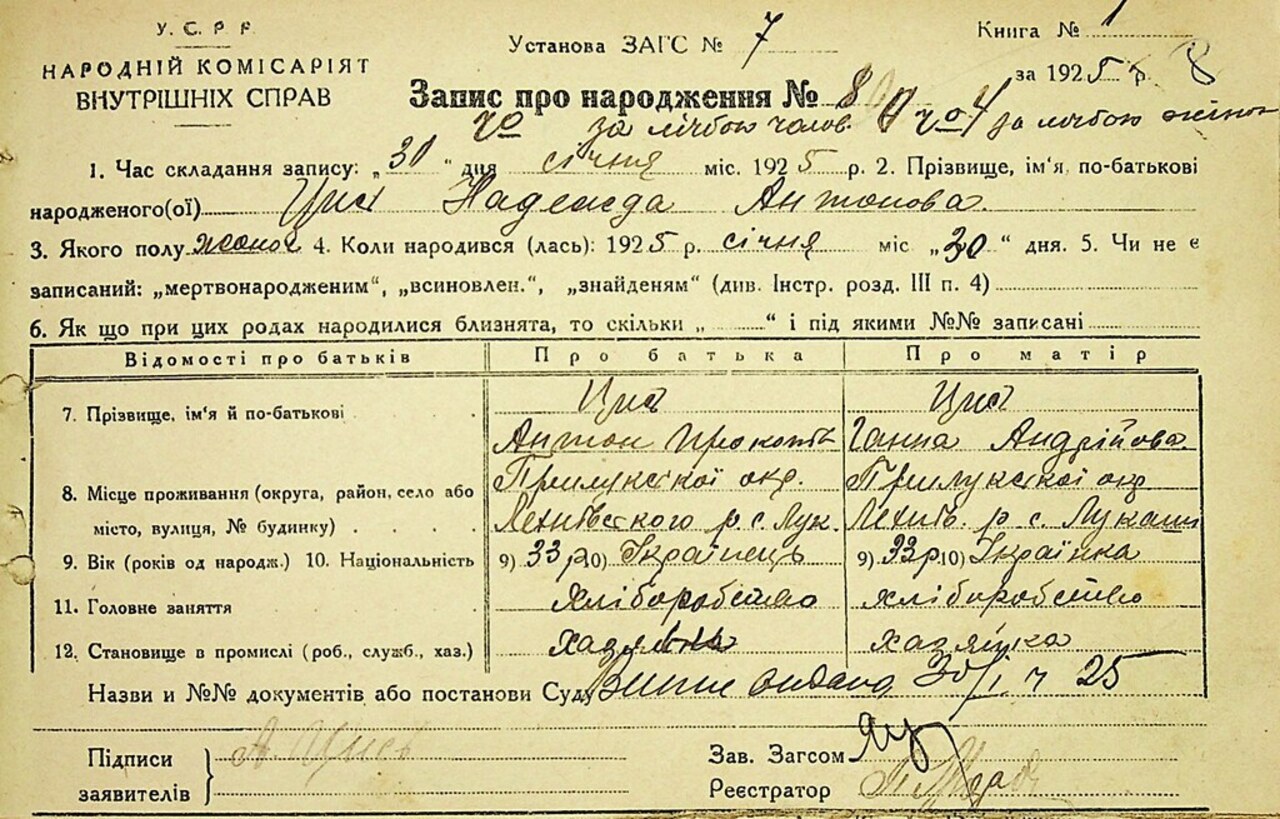 У.С.Р.Р.
НАРОДНІЙ КОМІСАРІЯТ
ВНУТРІШНІХ СПРАВ
Установа ЗАГС № 7
Книга № 1
за 1925 р.
Запис про народження № 8
за лічбою чолов. 4 за лічбою жінок
1. Час складання запису: „30“ дня січня міс. 1925 р. 2. Прізвище, ім'я, по-батькові
народженого(ої) Цись Надежда Антонова
3. Якого полу жоноч 4. Коли народився (лась): 1925 р. січня міс „20“ дня. 5. Чи не є
записаний: „мертвонародженим“, „всиновлен.“, „знайденям“ (див. Інстр. розд. III п. 4)
6. Як що при цих родах народилися близнята, то скільки „ “ і під якими №№ записані
Відомості про батьків Про батька Про матір
7. Прізвище, ім'я й по-батькові Цись Цись
Антон Прокопів Ганна Андрійова
8. Місце проживання (округа, район, село або Прилукської окр. Прилукської окр
місто, вулиця, № будинку) р. с. Лук. р. с. Лукаши
9. Вік (років од народж.) 10. Національність 9) 33 р. 10) Українець 9) 33 р. 10) Українка
11. Головне заняття хліборобство хліборобство
12. Становище в промислі (роб., служб., хаз.) хадзяїнь хадзяйка
Назви и №№ документів або постанови Суду видано 30/I 25
Підписи
заявителів
А. Цись
Зав. Загсом
Реєстратор